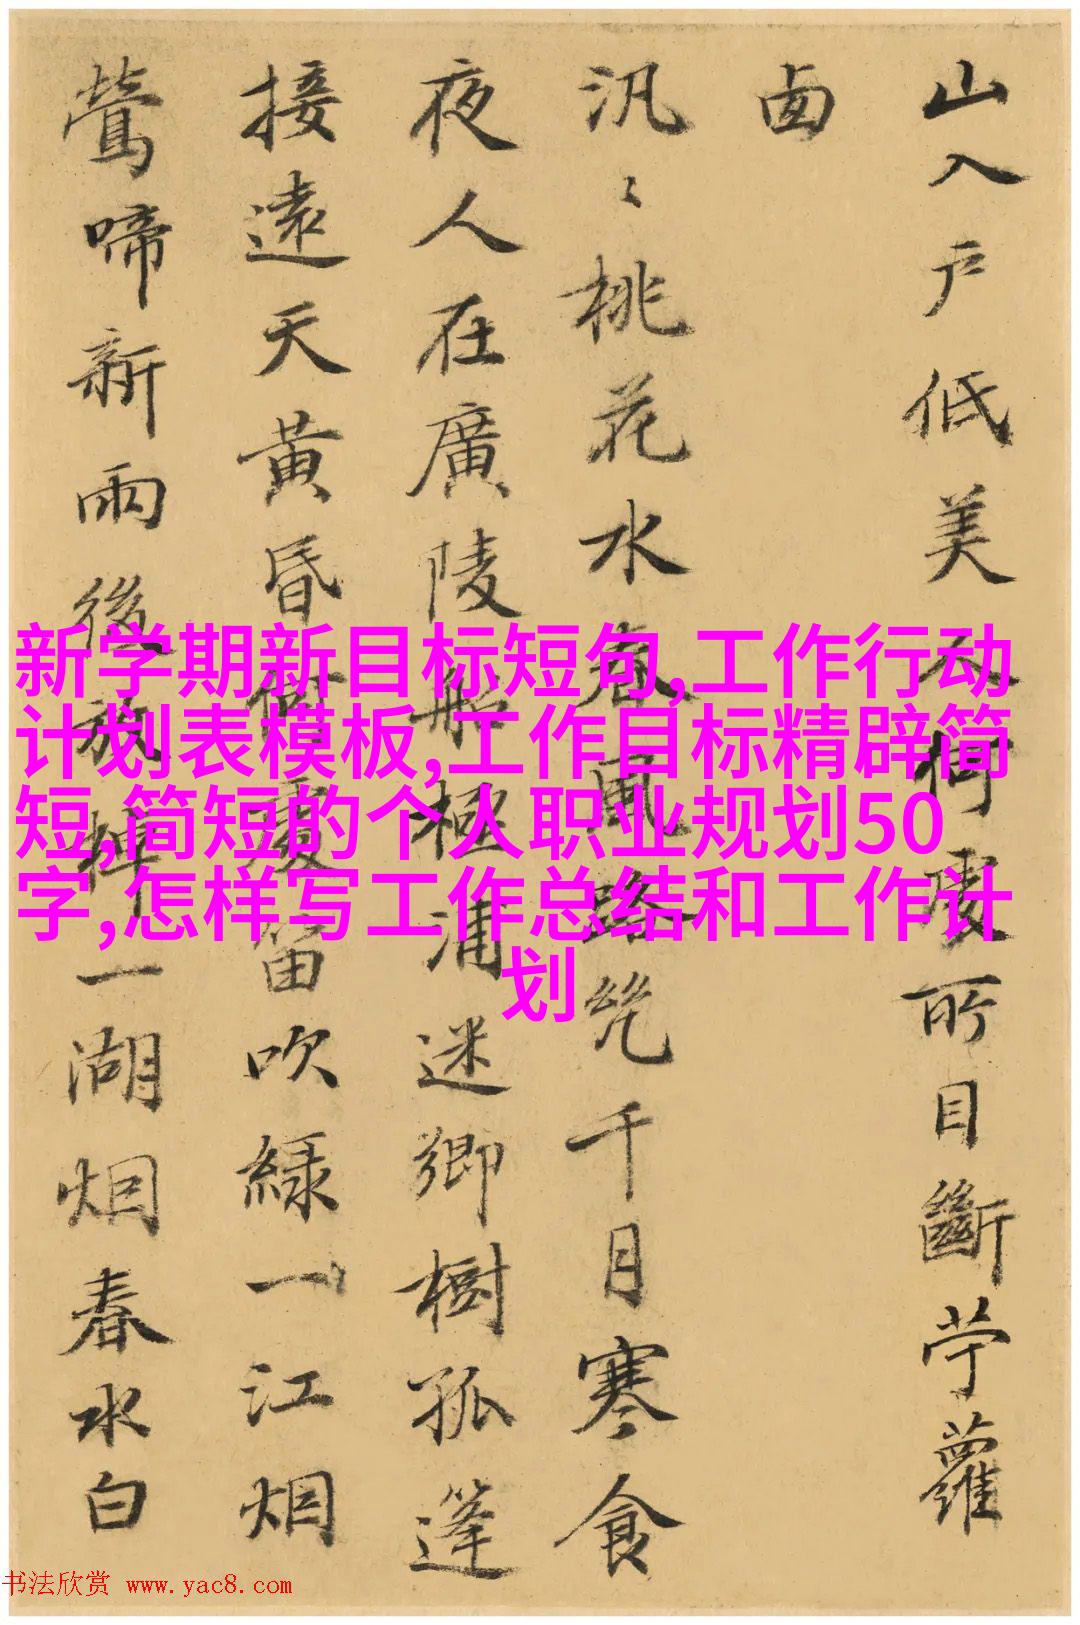 山入戶低美人何處所目斷苧蘿
卤
汎〻桃花水春風路絶千月寒食
夜人在廣陵船極浦迷鄉樹孤篷
接遠天黄昏何處笛吹綠一江烟
鶯啼新雨後放棹一湖烟春水白
新学期新目标短句,工作行动
计划表模板,工作目标精辟简
短,简短的个人职业规划50
字,怎样写工作总结和工作计
划
书法欣赏 www.yac8.com